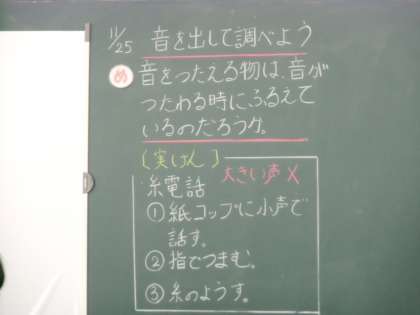 11/25 音を出して調べよう
め 音をつたえる物は、音が
つたわる時にふるえて
いるのだろうか。
(実けん)
糸電話 大きい声×
①紙コップに小声で
話す。
②指でつまむ。
③糸のようす。